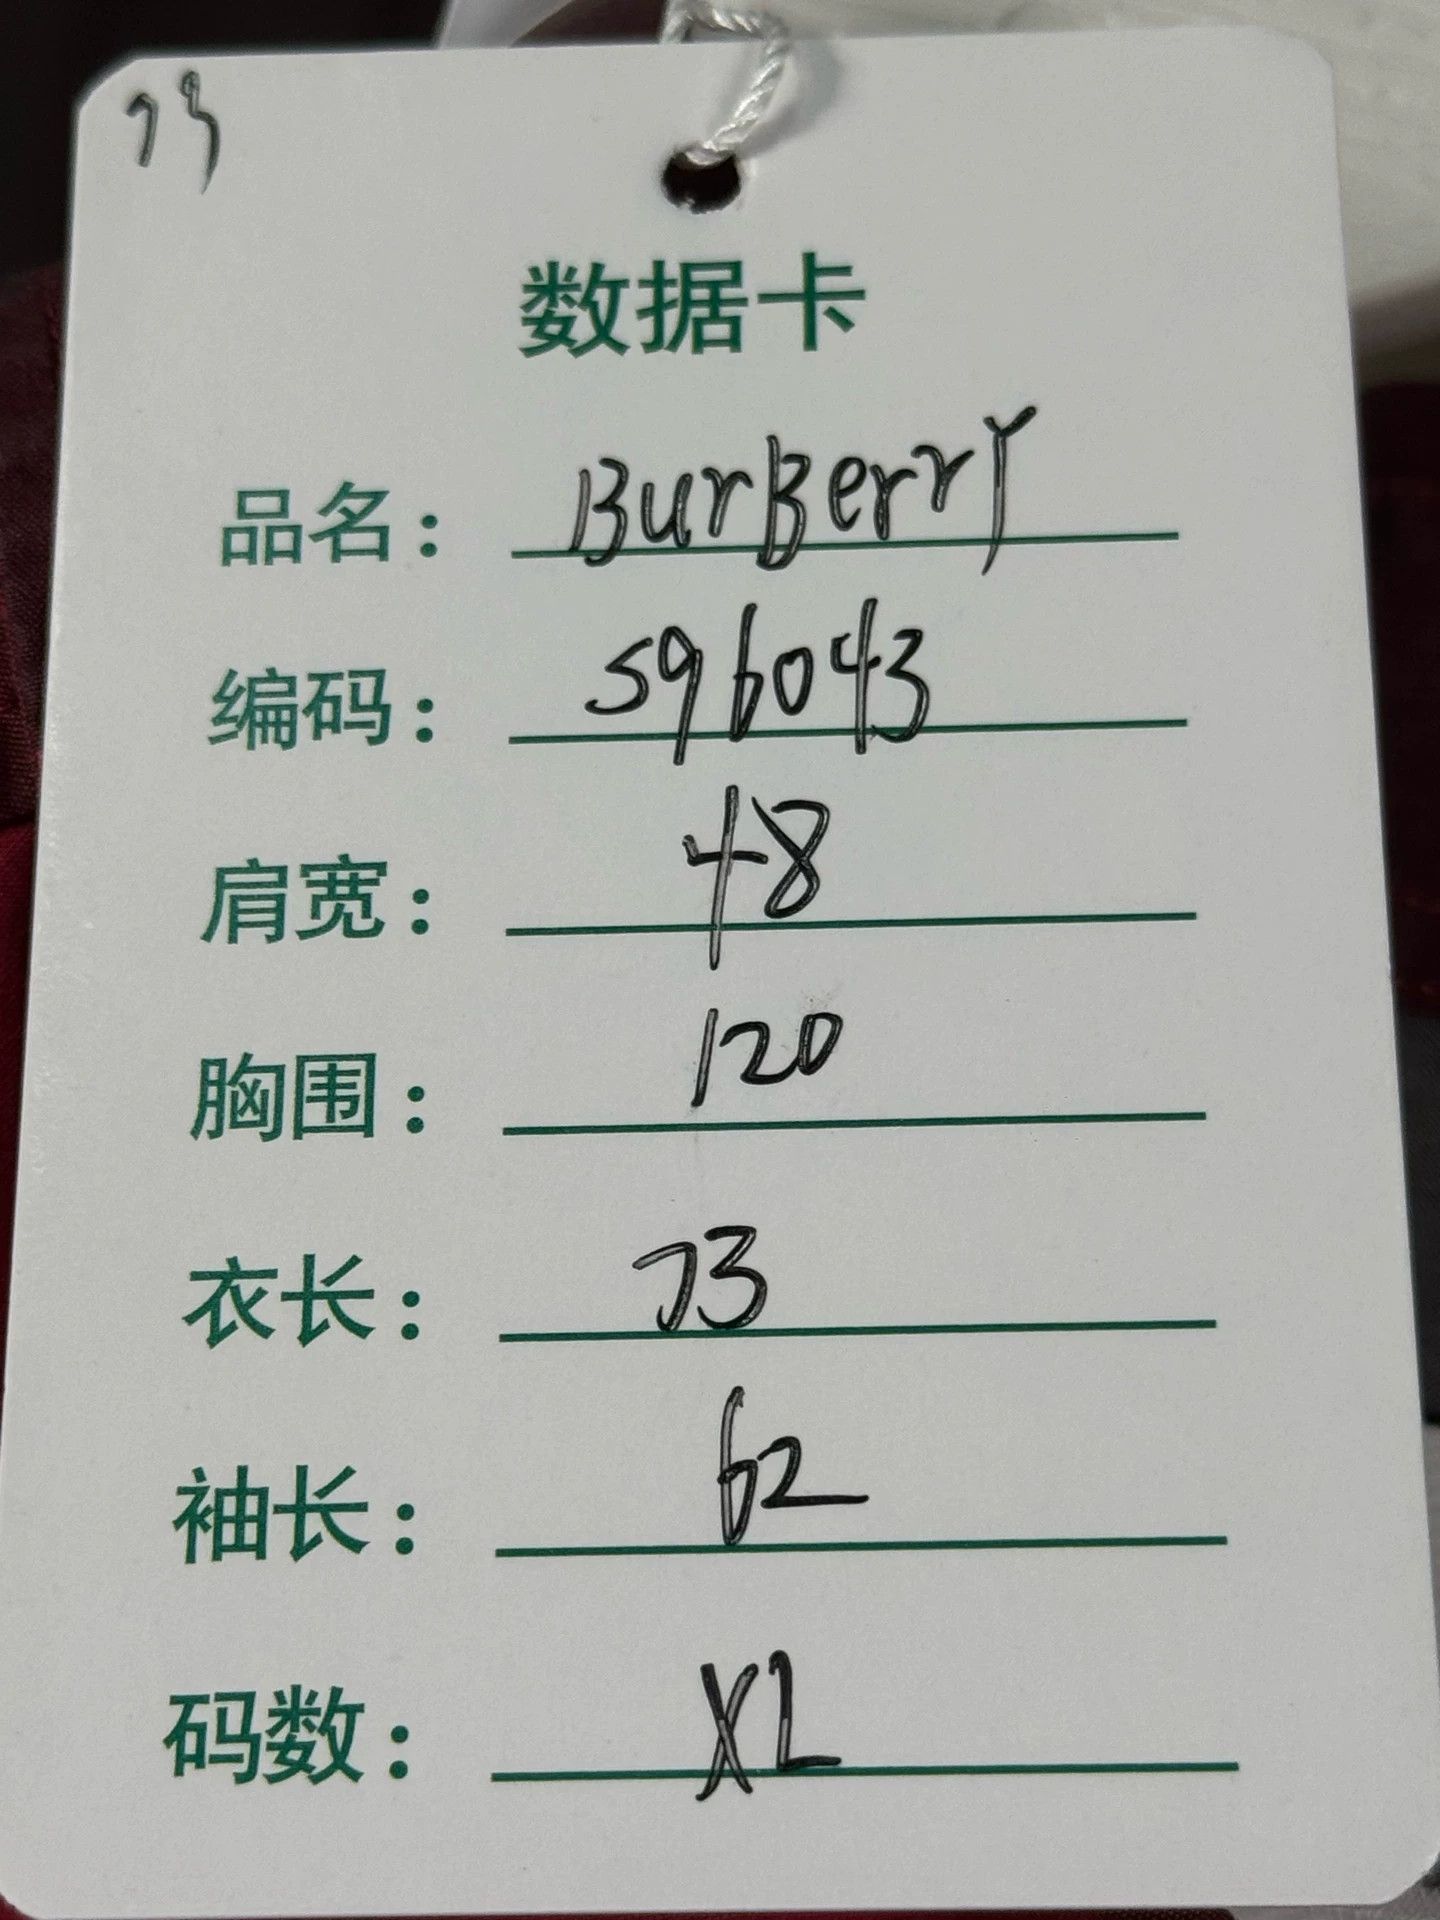 79
数据卡
品名：BurBerry
编码：S96043
肩宽：48
胸围：120
衣长：73
袖长：62
码数：XL